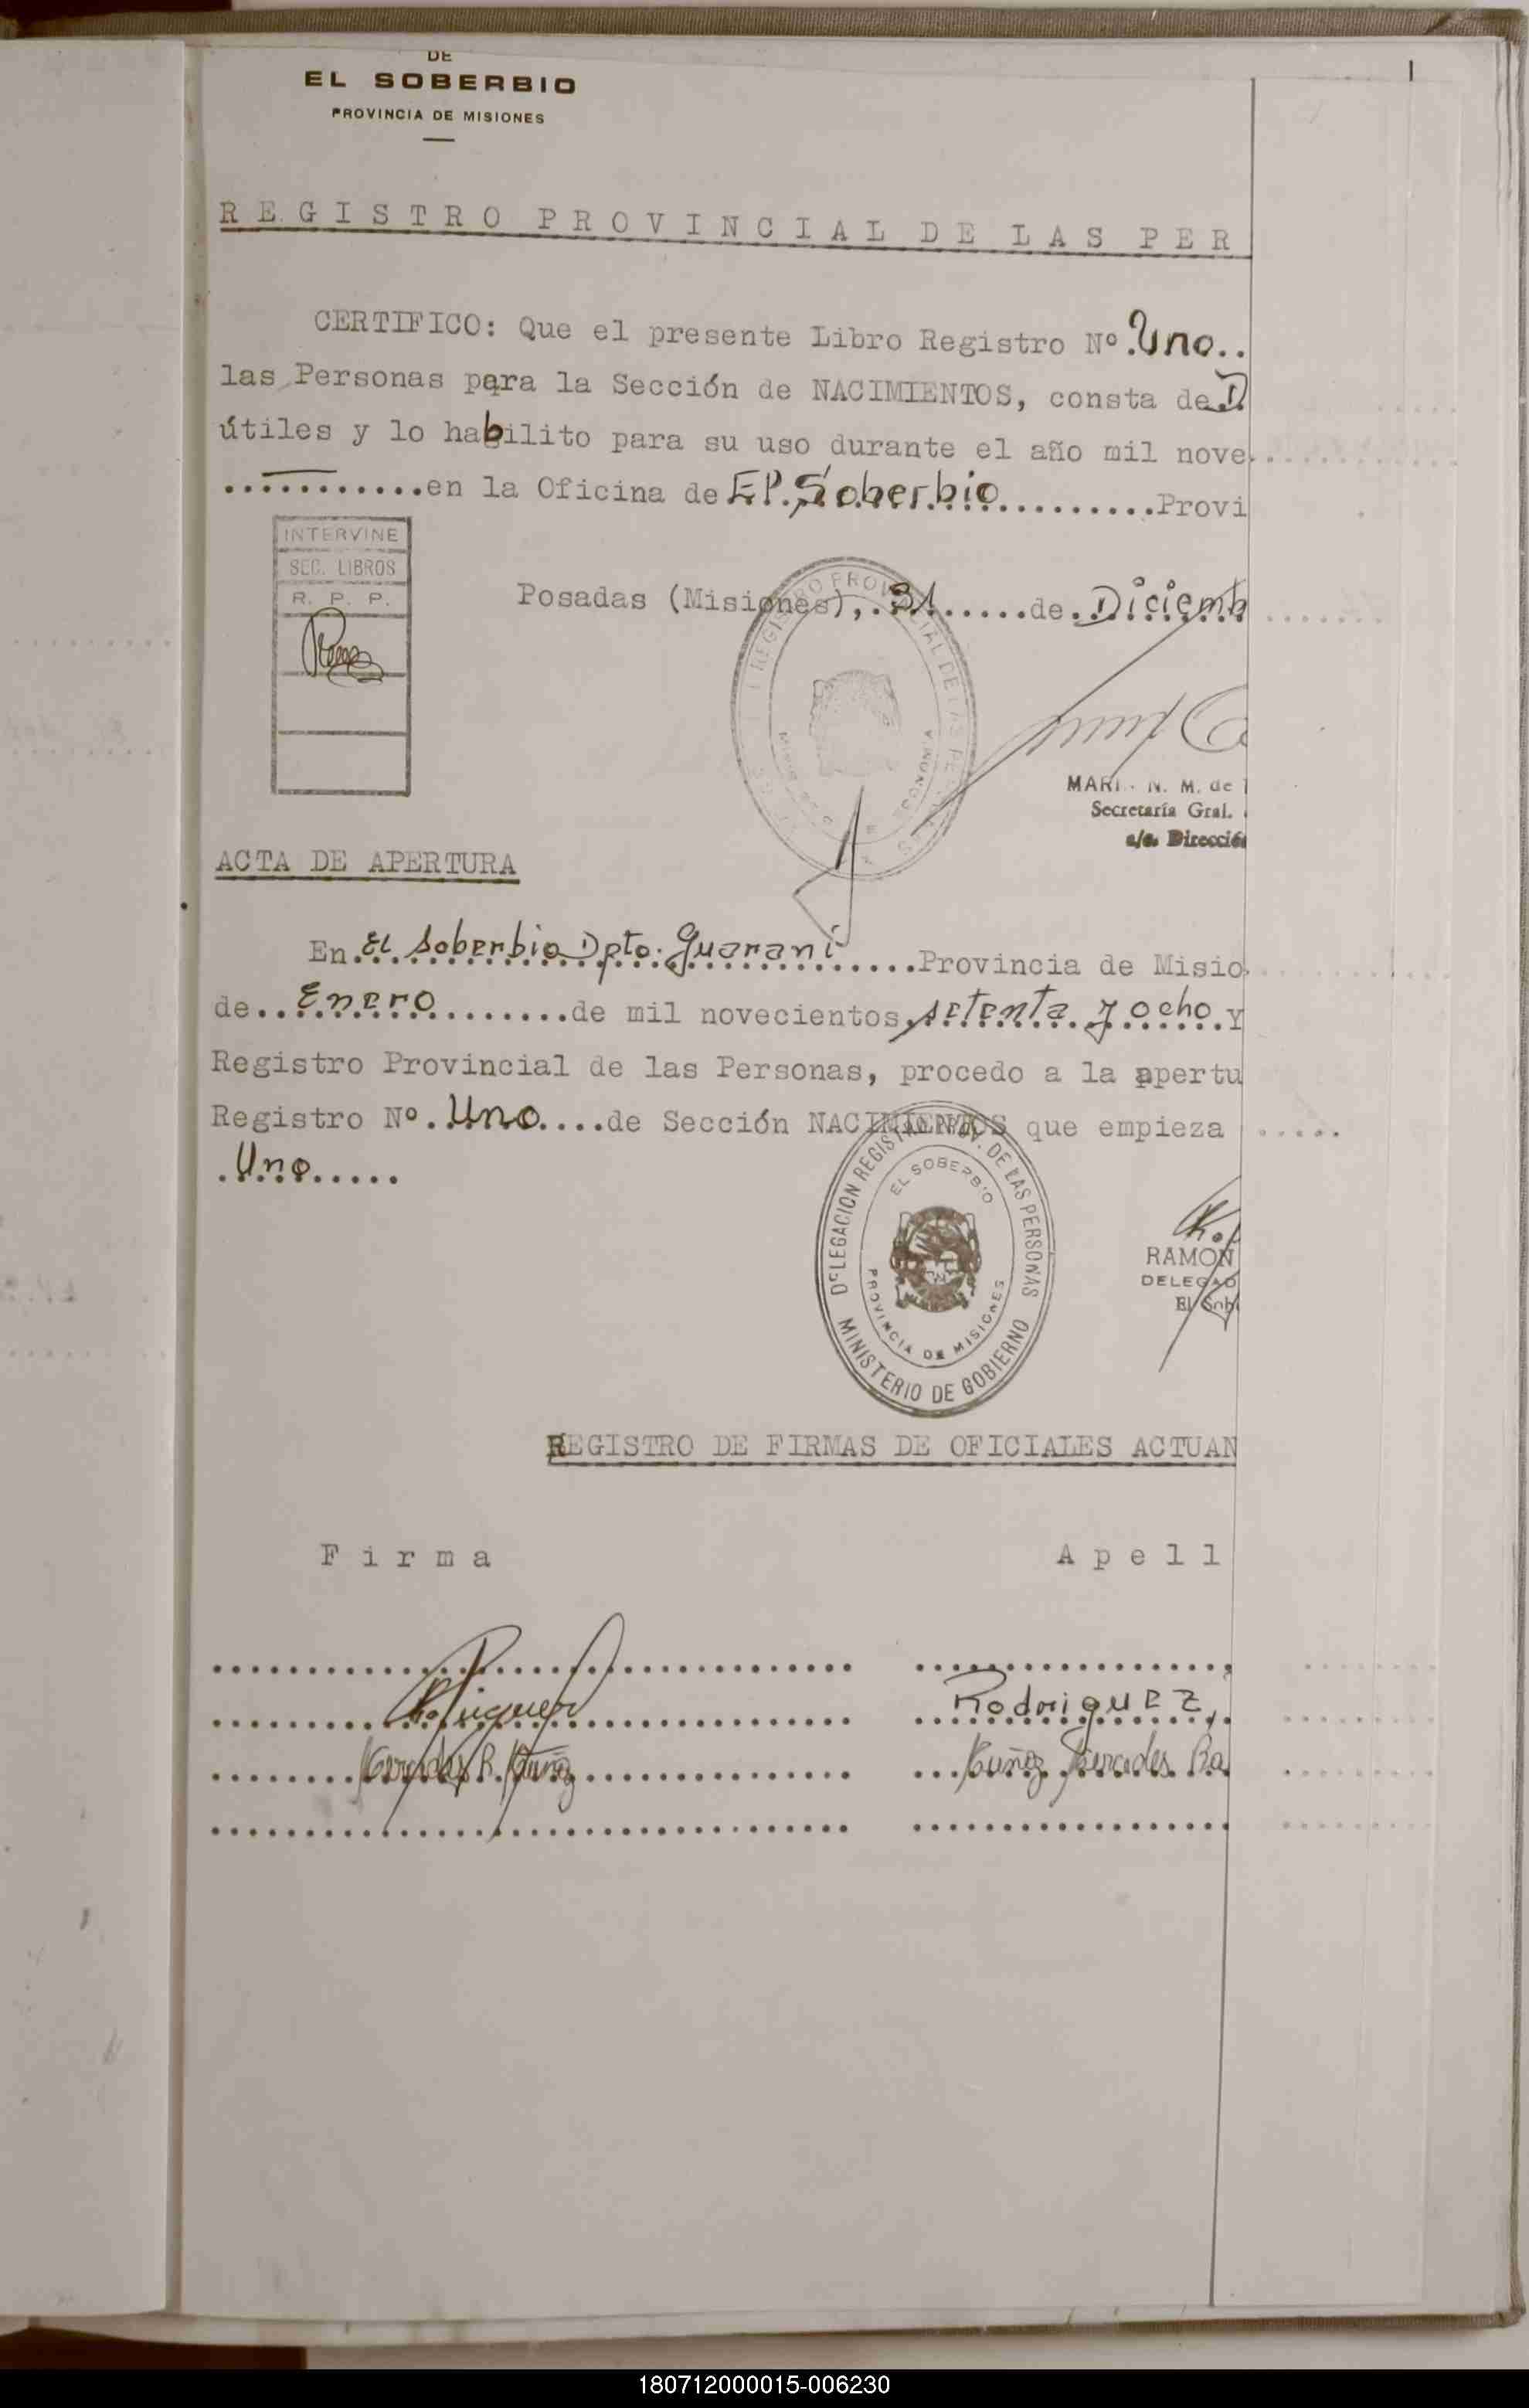 DE
EL SOBERBIO
PROVINCIA DE MISIONES
REGISTRO PROVINCIAL DE LAS PER
CERTIFICO: Que el presente Libro Registro Nº.Uno..
las Personas para la Sección de NACIMIENTOS, consta de D
útiles y lo habilito para su uso durante el año mil nove
............en la Oficina de El Soberbio..........Provi
INTERVINE
SEC. LIBROS
R. P. P.
Posadas (Misiones),.31......de.Diciemb
REGISTRO PROVINCIAL DE LAS PERSONAS
N. M. de
Secretaría Gral.
a/c. Direcció
ACTA DE APERTURA
En.El Soberbio Dpto. Guaraní.....Provincia de Misio
de..Enero.......de mil novecientos.setenta y ocho.Y
Registro Provincial de las Personas, procedo a la apertu
Registro Nº.Uno....de Sección NACIMIENTOS que empieza
.Uno.....
DELEGACION REGISTRO PROV. DE LAS PERSONAS
EL SOBERBIO
PROVINCIA DE MISIONES
MINISTERIO DE GOBIERNO
RAMON
DELEGAD
El Sob
REGISTRO DE FIRMAS DE OFICIALES ACTUAN
Firma Apell
Rodriguez,
Mercedes R. Nuñez Nuñez Mercedes Ra
180712000015-006230